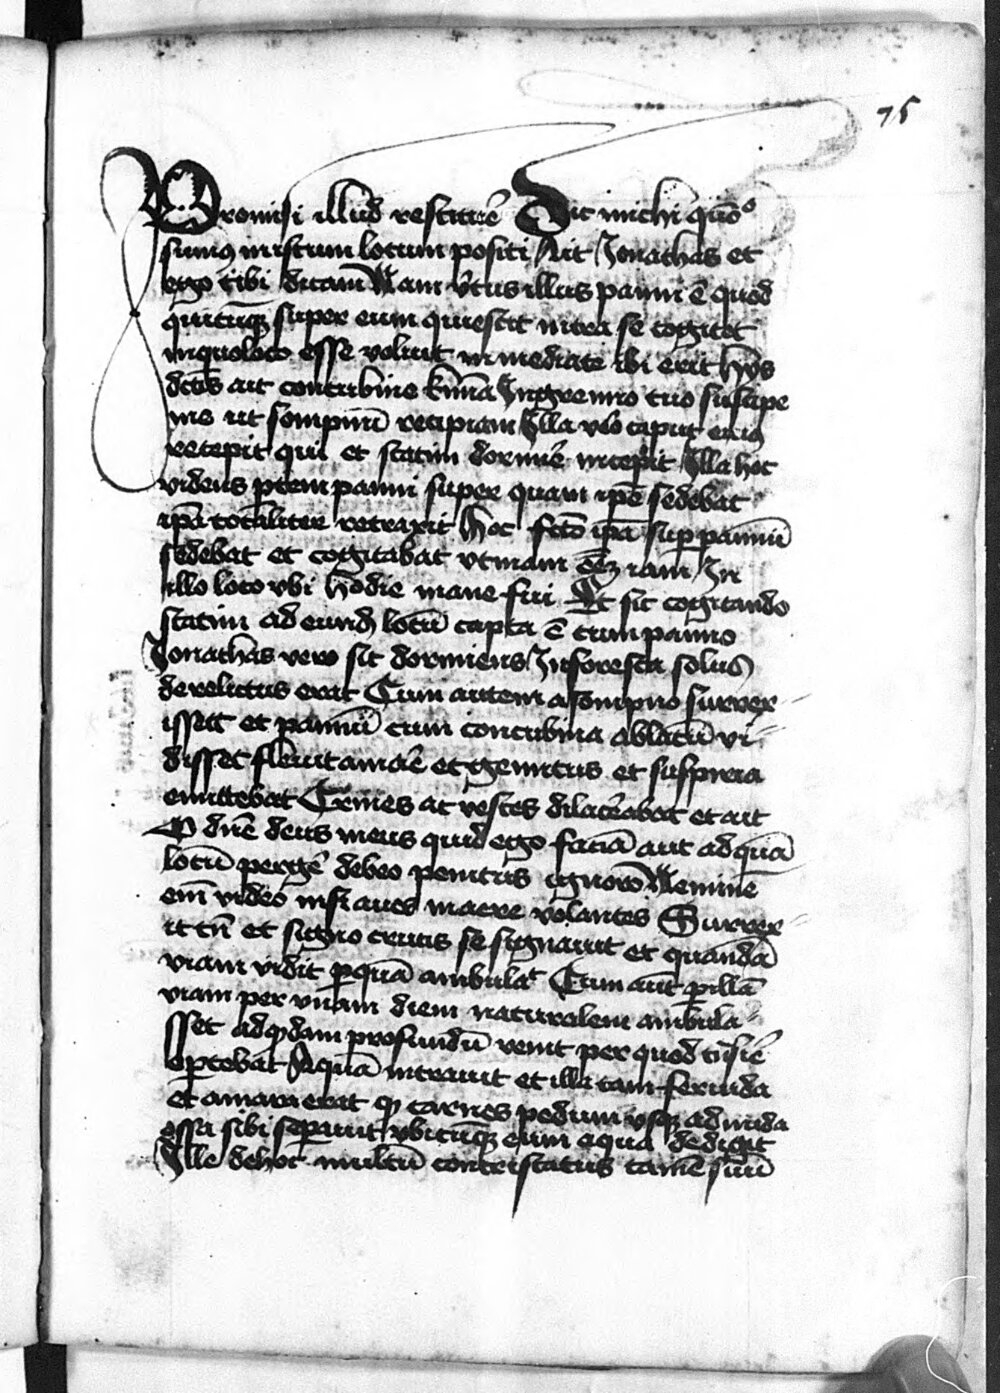 75
Promisi illud restituē Dic michi quōo
sumꝰ in istum locum positi Ait Jonathas et
ego tibi dicam Nam v̄tus illius panni ē quod
quicūqꝫ super eum quiescit intra se cogitet
in quo loco esse voluit in mediate ibi erit hijs
dc̄is ait concubine Jn gremio tuo suscipe
me ut sompnū recipiam Jlla vō caput eius
recepit qui et statim dormīe incepit Jlla hoc
videns ptem panni super quam ipē sedebat
ipā totaliter retraxit Hoc fcō ipā suꝑ pannū
sedebat et cogitabat vtinam eēꝫ iam Jn
illo loco vbi hodie mane fui Et sic cogitando
statim ad eundꝫ locū capta ē cum panno
Jonathas vero sic dormiens Jn foresta solus
derelictus erat Cum autem a sompno surrex-
isset et pannū cum concubina ablatū vi-
disset fleuit amāe et gemitus et suspiria
emittebat Crines ac vestes dilacēabat et ait
O dn̄e deus meus quid ego faciā aut ad quā
locū pergē debeo penitus ignoro Neminē
em̄ video nisi aues in aere volantes Surrex-
it tn̄ et signo crucis se signauit et quandā
viam vidit ꝑ quā ambulat Cum aut̄ ꝑ illā
viam per vnam diem naturalem ambula-
sset ad qdam profundū venit per quod tnsīe
oportebat Aquā intrauit et illa tam feruida
et amara erat qͥ carnes pedum vsqꝫ ad nuda
ossa sibi seꝑauit vbicūqꝫ eum aqua tetigit
Jlle de hoc multū contristatus tamē suū